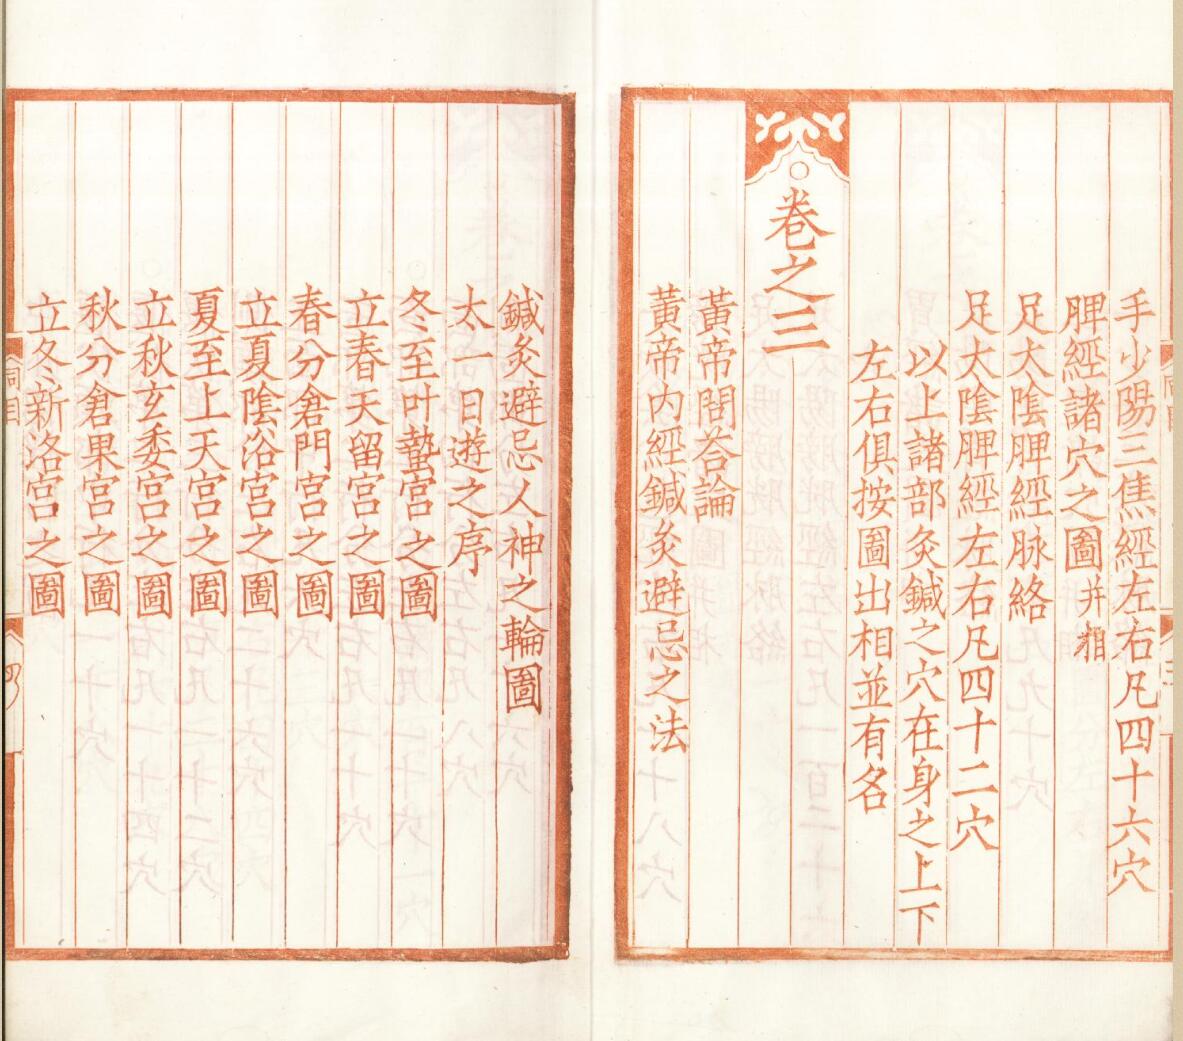 手少陽三焦經左右凡四十六穴
脾經諸穴之圖并相
足太陰脾經脉絡
足太陰脾經左右凡四十二穴
以上諸部灸鍼之穴在身之上下
左右俱按圖出相並有名
○卷之三
黃帝問荅論
黃帝内經鍼灸避忌之法
鍼灸避忌人神之輪圖
太一日遊之序
冬至叶蟄宮之圖
立春天留宮之圖
春分倉門宮之圖
立夏陰洛宮之圖
夏至上天宮之圖
立秋玄委宮之圖
秋分倉果宮之圖
立冬新洛宮之圖